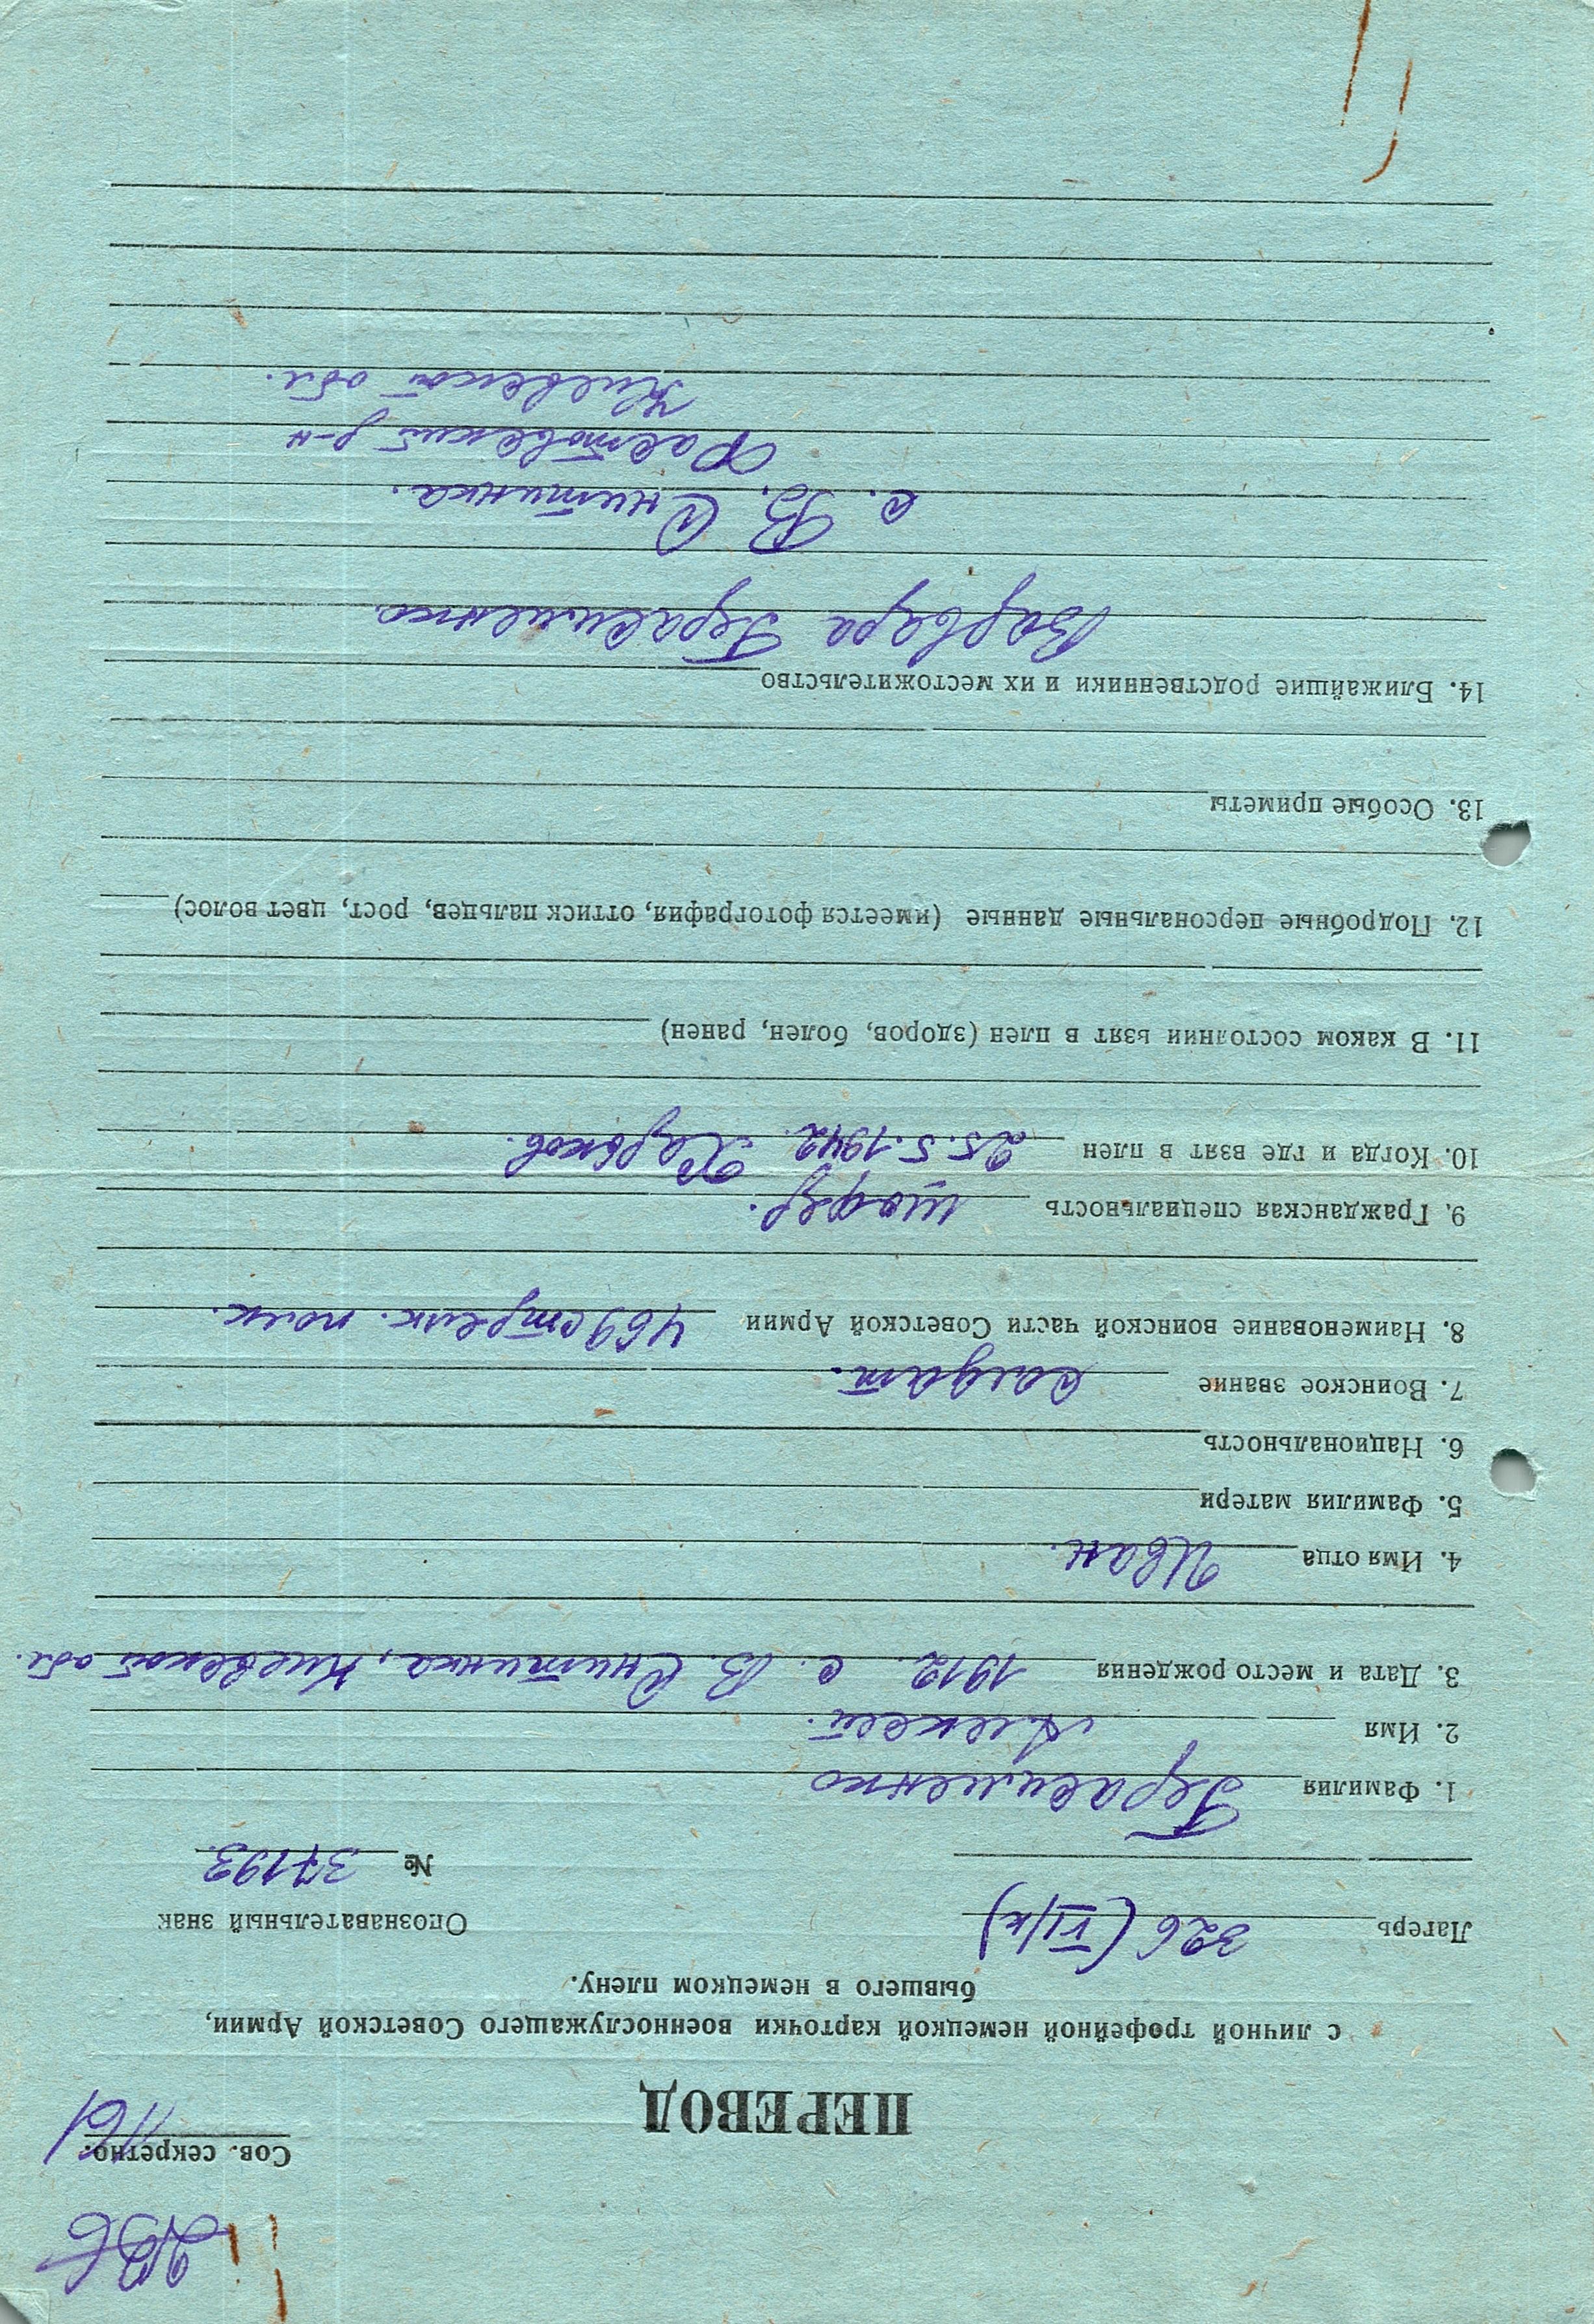 Сов. секретно.
ПЕРЕВОД
с личной трофейной немецкой карточки военнослужащего Советской Армии,
бывшего в немецком плену.
Лагерь 326 (VI/к)
Опознавательный знак
№ 37193.
1. Фамилия Герасименко
2. Имя Алексей.
3. Дата и место рождения 1912. с. В. Снитинка, Киевской обл.
4. Имя отца Иван.
5. Фамилия матери
6. Национальность
7. Воинское звание солдат.
8. Наименование воинской части Советской Армии 469 стрелк. полк.
9. Гражданская специальность шофер.
10. Когда и где взят в плен 25.5.1942. Харьков.
11. В каком состоянии взят в плен (здоров, болен, ранен)
12. Подробные персональные данные (имеется фотография, оттиск пальцев, рост, цвет волос)
13. Особые приметы
14. Ближайшие родственники и их местожительство
Варвара Герасименко.
с. В. Снитинка.
Фастовский р-н
Киевской обл.